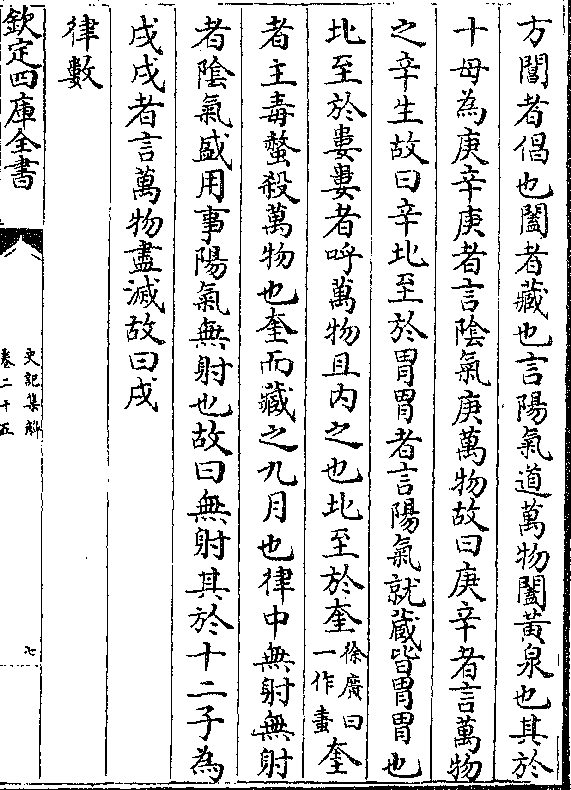 方閶者倡也闔者藏也言陽氣道萬物闔黃泉也其於
十母為庚辛庚者言隂氣庚萬物故曰庚辛者言萬物
之辛生故曰辛北至於胃胃者言陽氣就藏皆胃胃也
北至於婁婁者呼萬物且内之也北至於奎徐廣曰一作畫奎
者主毒螫殺萬物也奎而藏之九月也律中無射無射
者隂氣盛用事陽氣無射也故曰無射其於十二子為
戌戌者言萬物盡滅故曰戌
律數
欽定四庫全書
史記集解
卷二十五
七